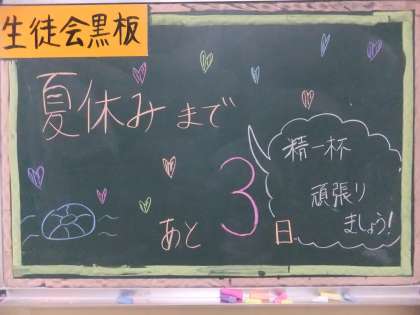 生徒会黒板
夏休みまで
あと3日
精一杯
頑張り
ましょう!